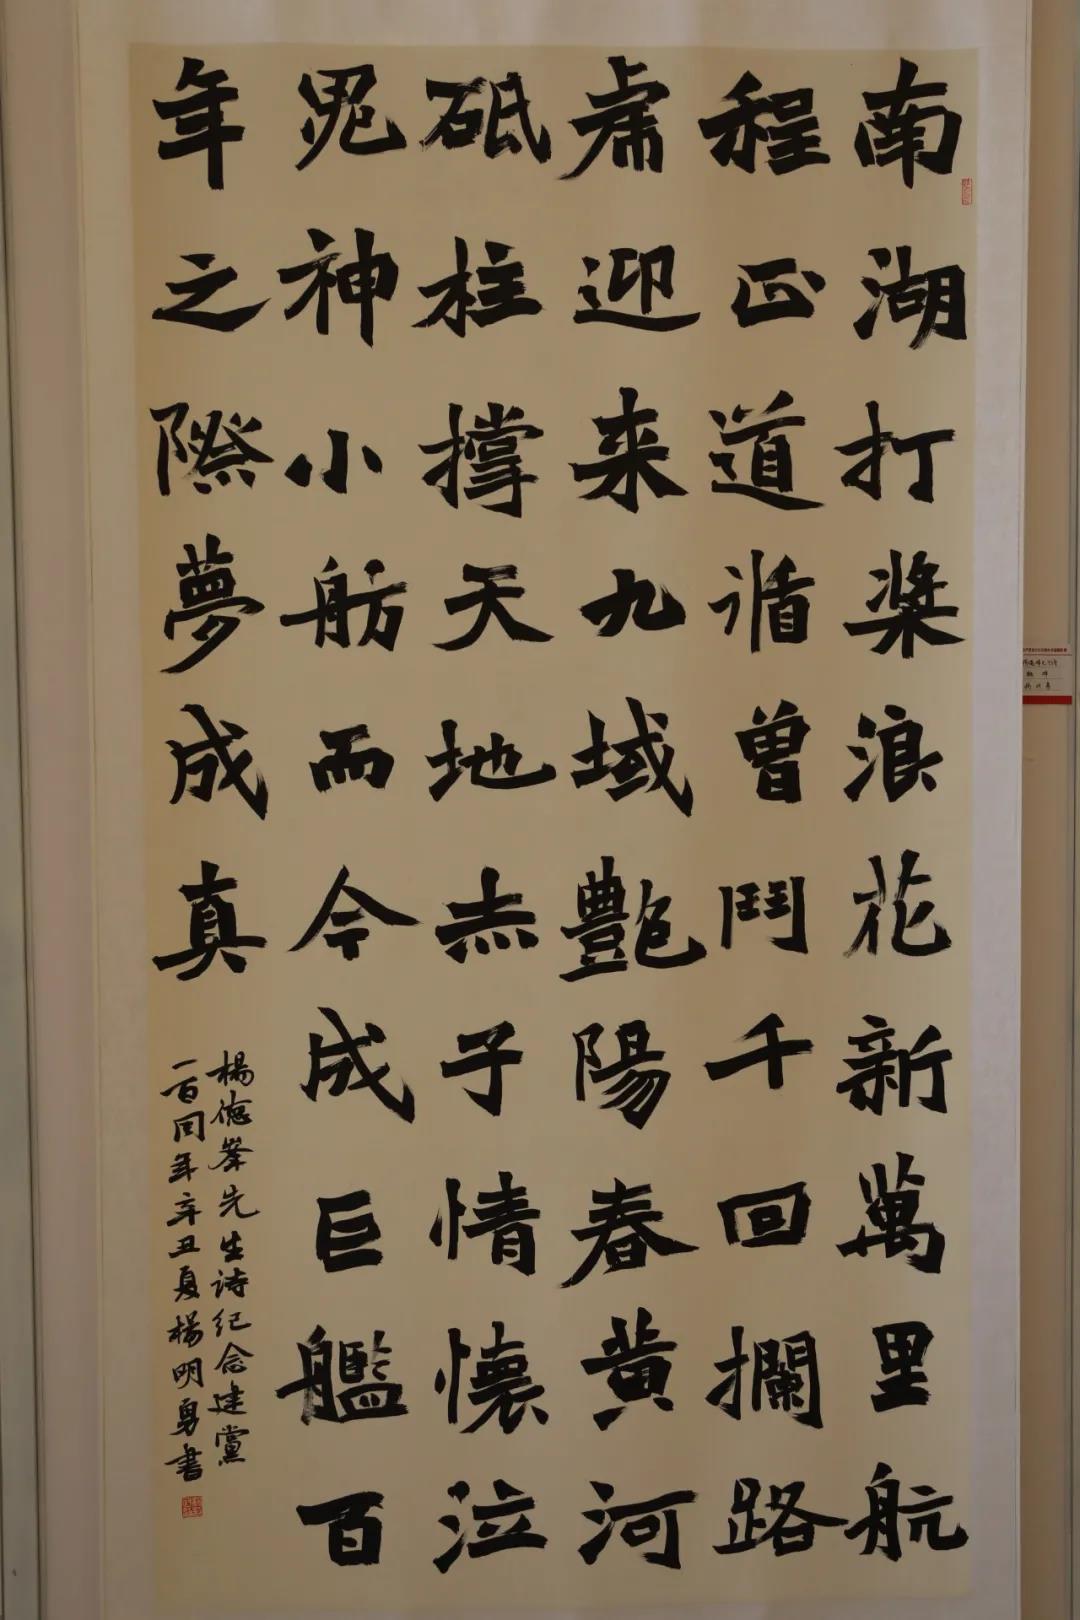 南湖打桨浪花新萬里航
程正道循曾鬥千回攔路
虎迎来九域艷陽春黄河
砥柱撑天地赤子情懷泣
鬼神小舫而今成巨艦百
年之際夢成真
楊德峯先生诗纪念建黨
一百周年辛丑夏楊明勇書